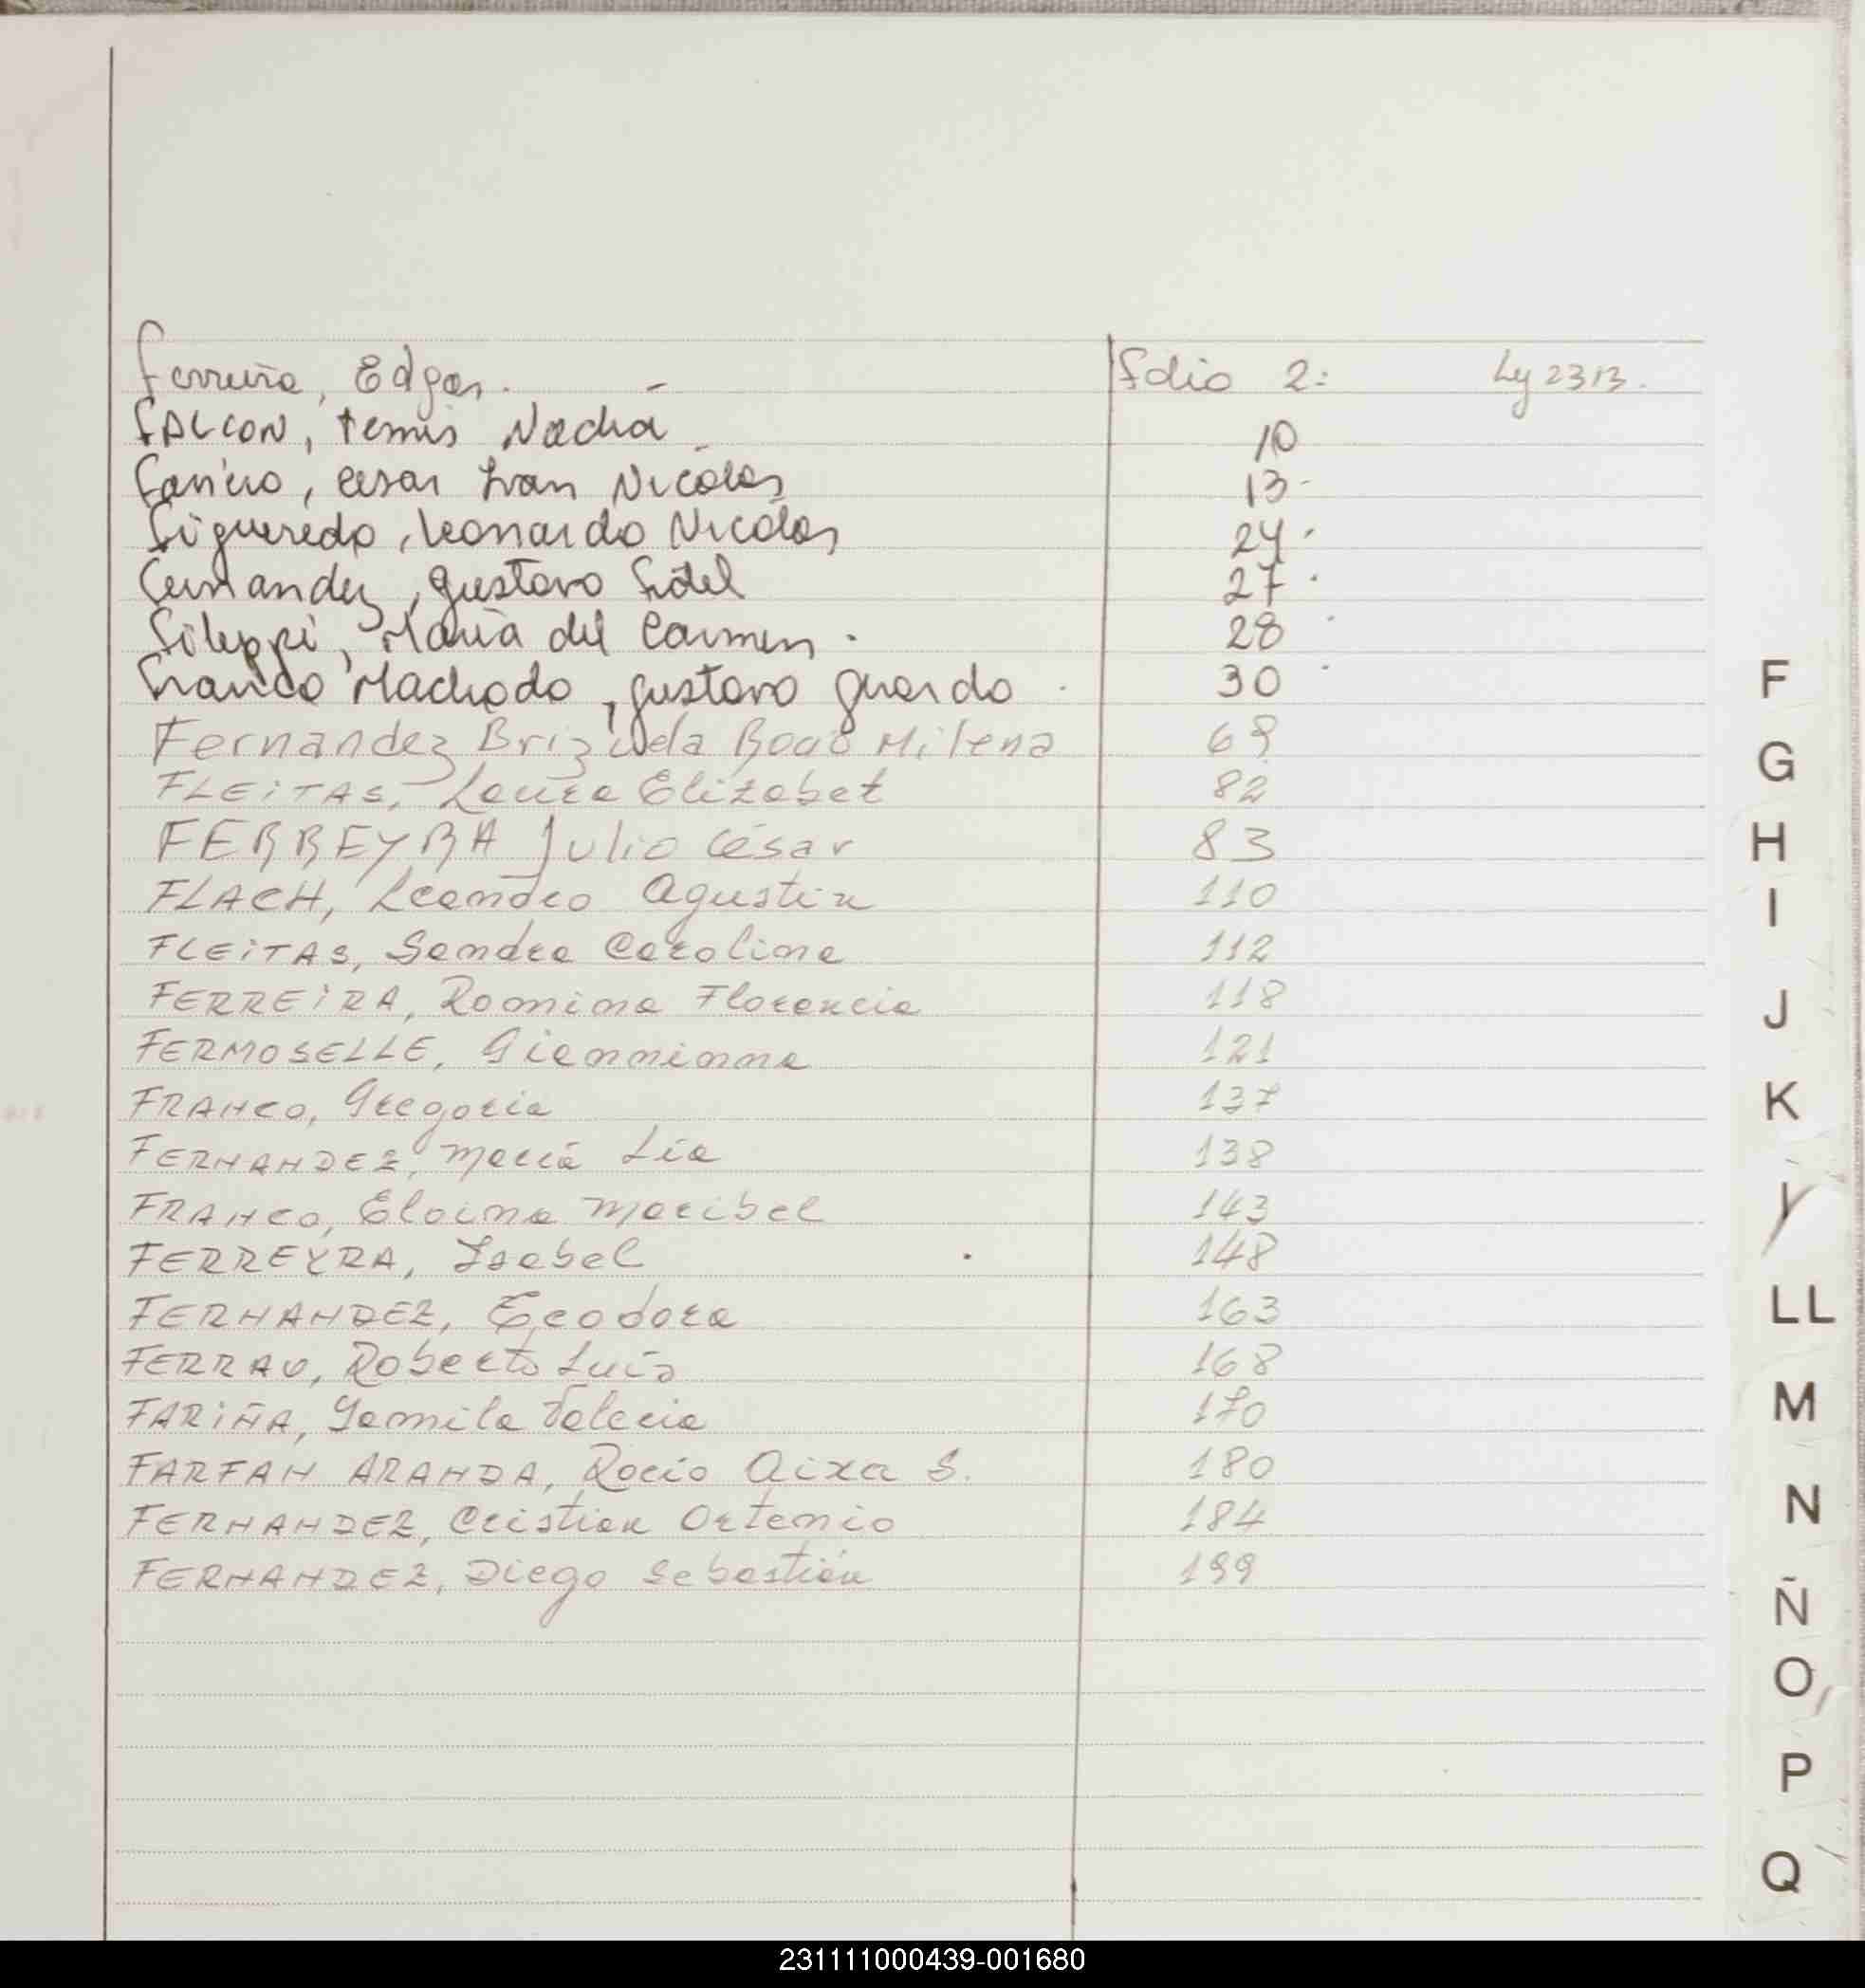 Ferreira, Edgar. - folio 2: Ly 2313.
FALCON, temis Nadia 10
Fariña, Cesar Ivan Nicolás 13-
Figueredo, Leonardo Nicolás 24.
Fernandez, Gustavo Fidel 27.
Fileppi, María del Carmen. 28
Franco Machado, Gustavo 30
Fernandez Brizuela Milena 69
FLEITAS, Laura Elizabet 82
FERREYRA Julio César 83
FLACH, Leandro Agustin 110
FLEITAS, Sandra Carolina 112
FERREIRA, Romina Florencia 118
FERMOSELLE, Giannianna 121
FRANCO, Gregoria 137
FERNANDEZ, María Lia 138
FRANCO, Eloina Maribel 143
FERREYRA, Isabel 148
FERNANDEZ, Teodora 163
FERRAU, Roberto Luis 168
FARIÑA, Yamila Valeria 170
FARFAN ARANDA, Rocío Aixa S. 180
FERNANDEZ, Cristian Ortenio 184
FERNANDEZ, Diego Sebastián 199
F
G
H
I
J
K
LL
M
N
Ñ
O
P
Q
231111000439-001680